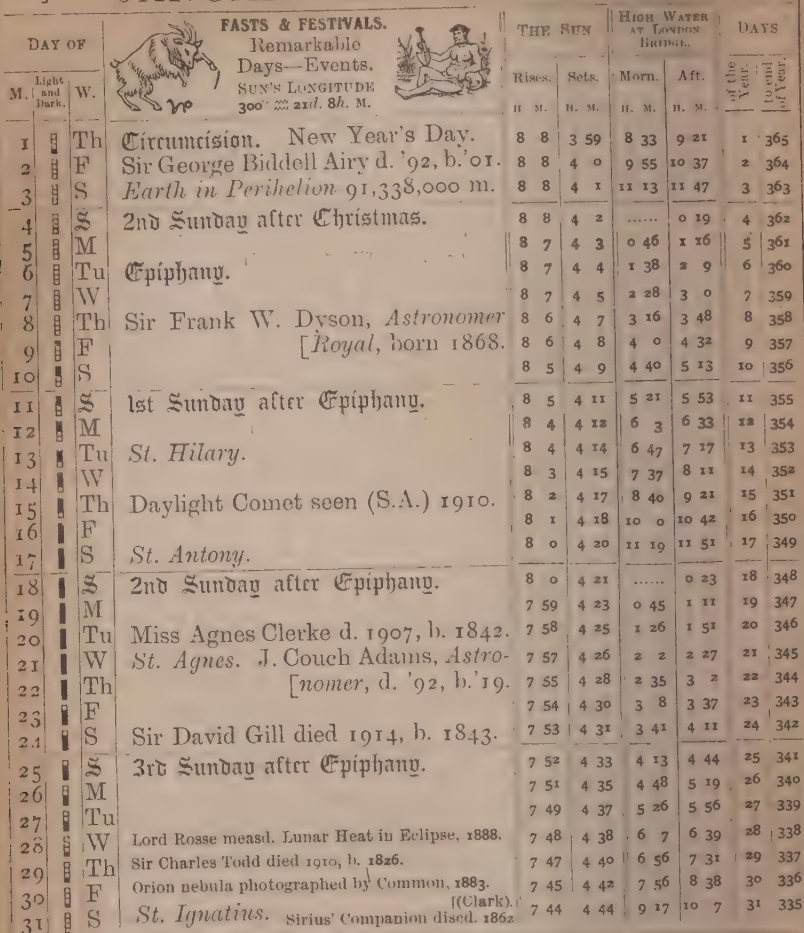 FASTS & FESTIVALS.
Remarkable
Days—Events.
SUN'S LONGITUDE
300° ♒ 21d. 8h. M.
DAY OF
THE SUN
HIGH WATER
AT LONDON
BRIDGE.
DAYS
M. Light and Dark. W. Rises. Sets. Morn. Aft. of the Year. to end of Year.
H M. H. M. H. M. H. M.
1 Th Circumcision. New Year's Day. 8 8 3 59 8 33 9 21 1 365
2 F Sir George Biddell Airy d. '92, b.'01. 8 8 4 0 9 55 10 37 2 364
3 S Earth in Perihelion 91,338,000 m. 8 8 4 1 11 13 11 47 3 363
4 S 2nd Sunday after Christmas. 8 8 4 2 ...... 0 19 4 362
5 M 8 7 4 3 0 46 1 16 5 361
6 Tu Epiphany. 8 7 4 4 1 38 2 9 6 360
7 W 8 7 4 5 2 28 3 0 7 359
8 Th Sir Frank W. Dyson, Astronomer 8 6 4 7 3 16 3 48 8 358
9 F [Royal, born 1868. 8 6 4 8 4 0 4 32 9 357
10 S 8 5 4 9 4 40 5 13 10 356
11 S 1st Sunday after Epiphany. 8 5 4 11 5 21 5 53 11 355
12 M 8 4 4 12 6 3 6 33 12 354
13 Tu St. Hilary. 8 4 4 14 6 47 7 17 13 353
14 W 8 3 4 15 7 37 8 11 14 352
15 Th Daylight Comet seen (S.A.) 1910. 8 2 4 17 8 40 9 21 15 351
16 F 8 1 4 18 10 0 10 42 16 350
17 S St. Antony. 8 0 4 20 11 19 11 51 17 349
18 S 2nd Sunday after Epiphany. 8 0 4 21 ...... 0 23 18 348
19 M 7 59 4 23 0 45 1 11 19 347
20 Tu Miss Agnes Clerke d. 1907, b. 1842. 7 58 4 25 1 26 1 51 20 346
21 W St. Agnes. J. Couch Adams, Astro- 7 57 4 26 2 2 2 27 21 345
22 Th [nomer, d. '92, b.'19. 7 55 4 28 2 35 3 2 22 344
23 F 7 54 4 30 3 8 3 37 23 343
24 S Sir David Gill died 1914, b. 1843. 7 53 4 31 3 41 4 11 24 342
25 S 3rd Sunday after Epiphany. 7 52 4 33 4 13 4 44 25 341
26 M 7 51 4 35 4 48 5 19 26 340
27 Tu 7 49 4 37 5 26 5 56 27 339
28 W Lord Rosse measd. Lunar Heat in Eclipse, 1888. 7 48 4 38 6 7 6 39 28 338
29 Th Sir Charles Todd died 1910, b. 1826. 7 47 4 40 6 56 7 31 29 337
30 F Orion nebula photographed by Common, 1883. 7 45 4 42 7 56 8 38 30 336
[(Clark).
31 S St. Ignatius. Sirius' Companion discd. 1862 7 44 4 44 9 17 10 7 31 335